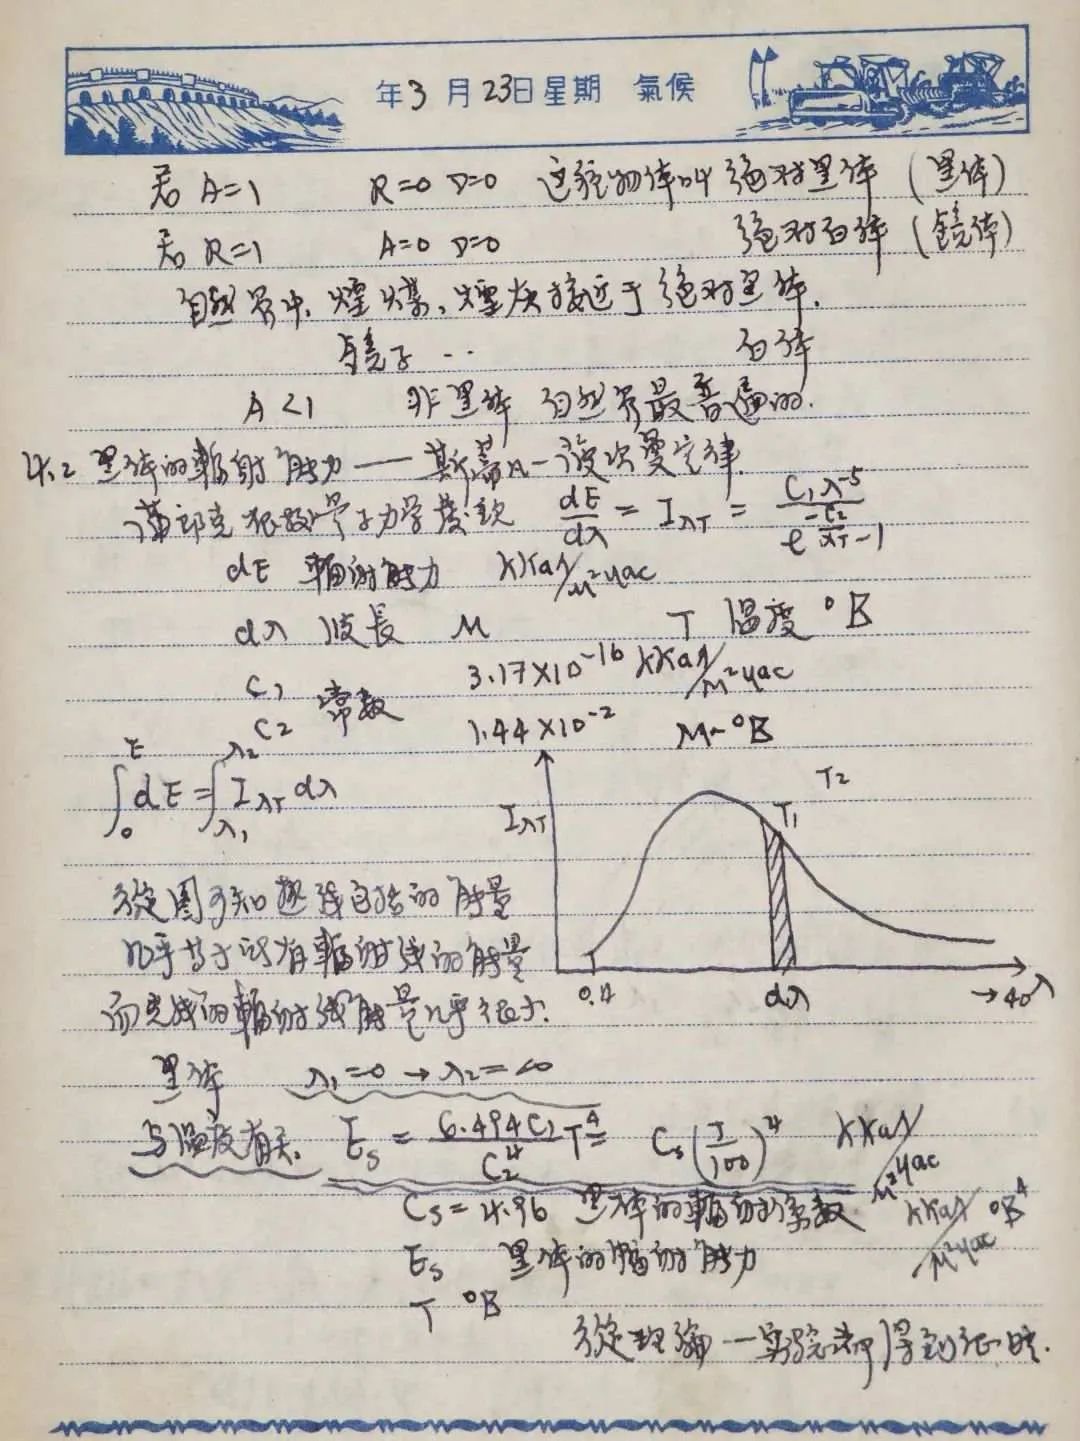 年3月23日星期 氣候
若 A=1 R=0 D=0 这种物体叫 绝对黑体 (黑体)
若 R=1 A=0 D=0 绝对白体 (镜体)
自然界中、煙煤、煙灰接近于绝对黑体.
镜子 ‥ 白体
A<1 非黑体 自然界最普遍的.
4.2 黑体的輻射能力——斯蒂 一波次曼定律.
根据量子力学 dE/dλ = IλT = C₁λ⁻⁵/e^(-C₂/λT)-1
dE 輻射能力 KKaл/м²час
dλ 波長 м T 温度 °B
C₁ 3.17×10⁻¹⁶ KKaл/м²час
C₂ 常数 1.44×10⁻² м-°B
∫₀ᴱ dE = ∫λ₁^λ₂ IλT dλ
IλT T₂ T₁
0.4 dλ →40 λ
从图可知热线包括的能量
几乎等于所有輻射线的能量
而光线的輻射线能量几乎很少.
黑体 λ₁=0→λ₂=∞
与温度有关. Es = 6.494C₁/C₂⁴ T⁴ = Cs(T/100)⁴ KKaл/м²час
Cs=4.96 黑体的輻射系数 KKaл/м²час °B⁴
Es 黑体的輻射能力
T °B
从理論—实验都得到证明.